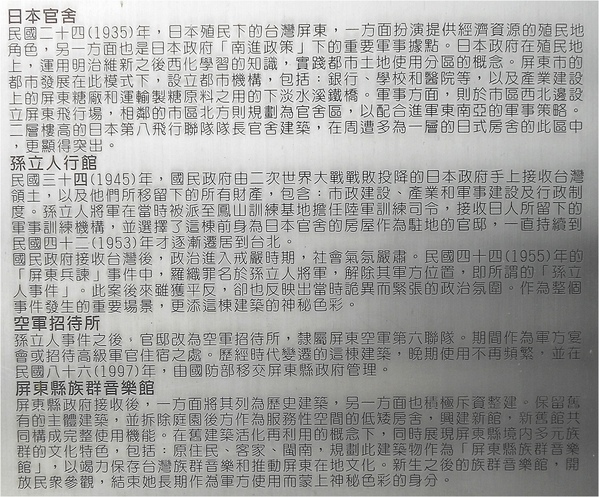 日本官舍
民國二十四(1935)年，日本殖民下的台灣屏東，一方面扮演提供經濟資源的殖民地
角色，另一方面也是日本政府「南進政策」下的重要軍事據點。日本政府在殖民地
上，運用明治維新之後西化學習的知識，實踐都市土地使用分區的概念。屏東市的
都市發展在此模式下，設立都市機構，包括：銀行、學校和醫院等，以及產業建設
上的屏東糖廠和運輸製糖原料之用的下淡水溪鐵橋。軍事方面，則於市區西北邊設
立屏東飛行場，相鄰的市區北方則規劃為官舍區，以配合進軍東南亞的軍事策略。
二層樓高的日本第八飛行聯隊隊長官舍建築，在周遭多為一層的日式房舍的此區中
，更顯得突出。
孫立人行館
民國三十四(1945)年，國民政府由二次世界大戰戰敗投降的日本政府手上接收台灣
領土，以及他們所移留下的所有財產，包含：市政建設、產業和軍事建設及行政制
度。孫立人將軍在當時被派至鳳山訓練基地擔任陸軍訓練司令，接收日人所留下的
軍事訓練機構，並選擇了這棟前身為日本官舍的房屋作為駐地的官邸，一直持續到
民國四十二(1953)年才逐漸遷居到台北。
國民政府接收台灣後，政治進入戒嚴時期，社會氣氛嚴肅。民國四十四(1955)年的
「屏東兵諫」事件中，羅織罪名於孫立人將軍，解除其軍方位置，即所謂的「孫立
人事件」。此案後來雖獲平反，卻也反映出當時詭異而緊張的政治氛圍。作為整個
事件發生的重要場景，更添這棟建築的神秘色彩。
空軍招待所
孫立人事件之後，官邸改為空軍招待所，隸屬屏東空軍第六聯隊。期間作為軍方宴
會或招待高級軍官住宿之處。歷經時代變遷的這棟建築，晚期使用不再頻繁，並在
民國八十六(1997)年，由國防部移交屏東縣政府管理。
屏東縣族群音樂館
屏東縣政府接收後，一方面將其列為歷史建築，另一方面也積極斥資整建。保留舊
有的主體建築，並拆除庭園後方作為服務性空間的低矮房舍，興建新館，新舊館共
同構成完整使用機能。在舊建築活化再利用的概念下，同時展現屏東縣境內多元族
群的文化特色，包括：原住民、客家、閩南，規劃此建築物作為「屏東縣族群音樂
館」，以竭力保存台灣族群音樂和推動屏東在地文化。新生之後的族群音樂館，開
放民眾參觀，結束她長期作為軍方使用而蒙上神秘色彩的身分。